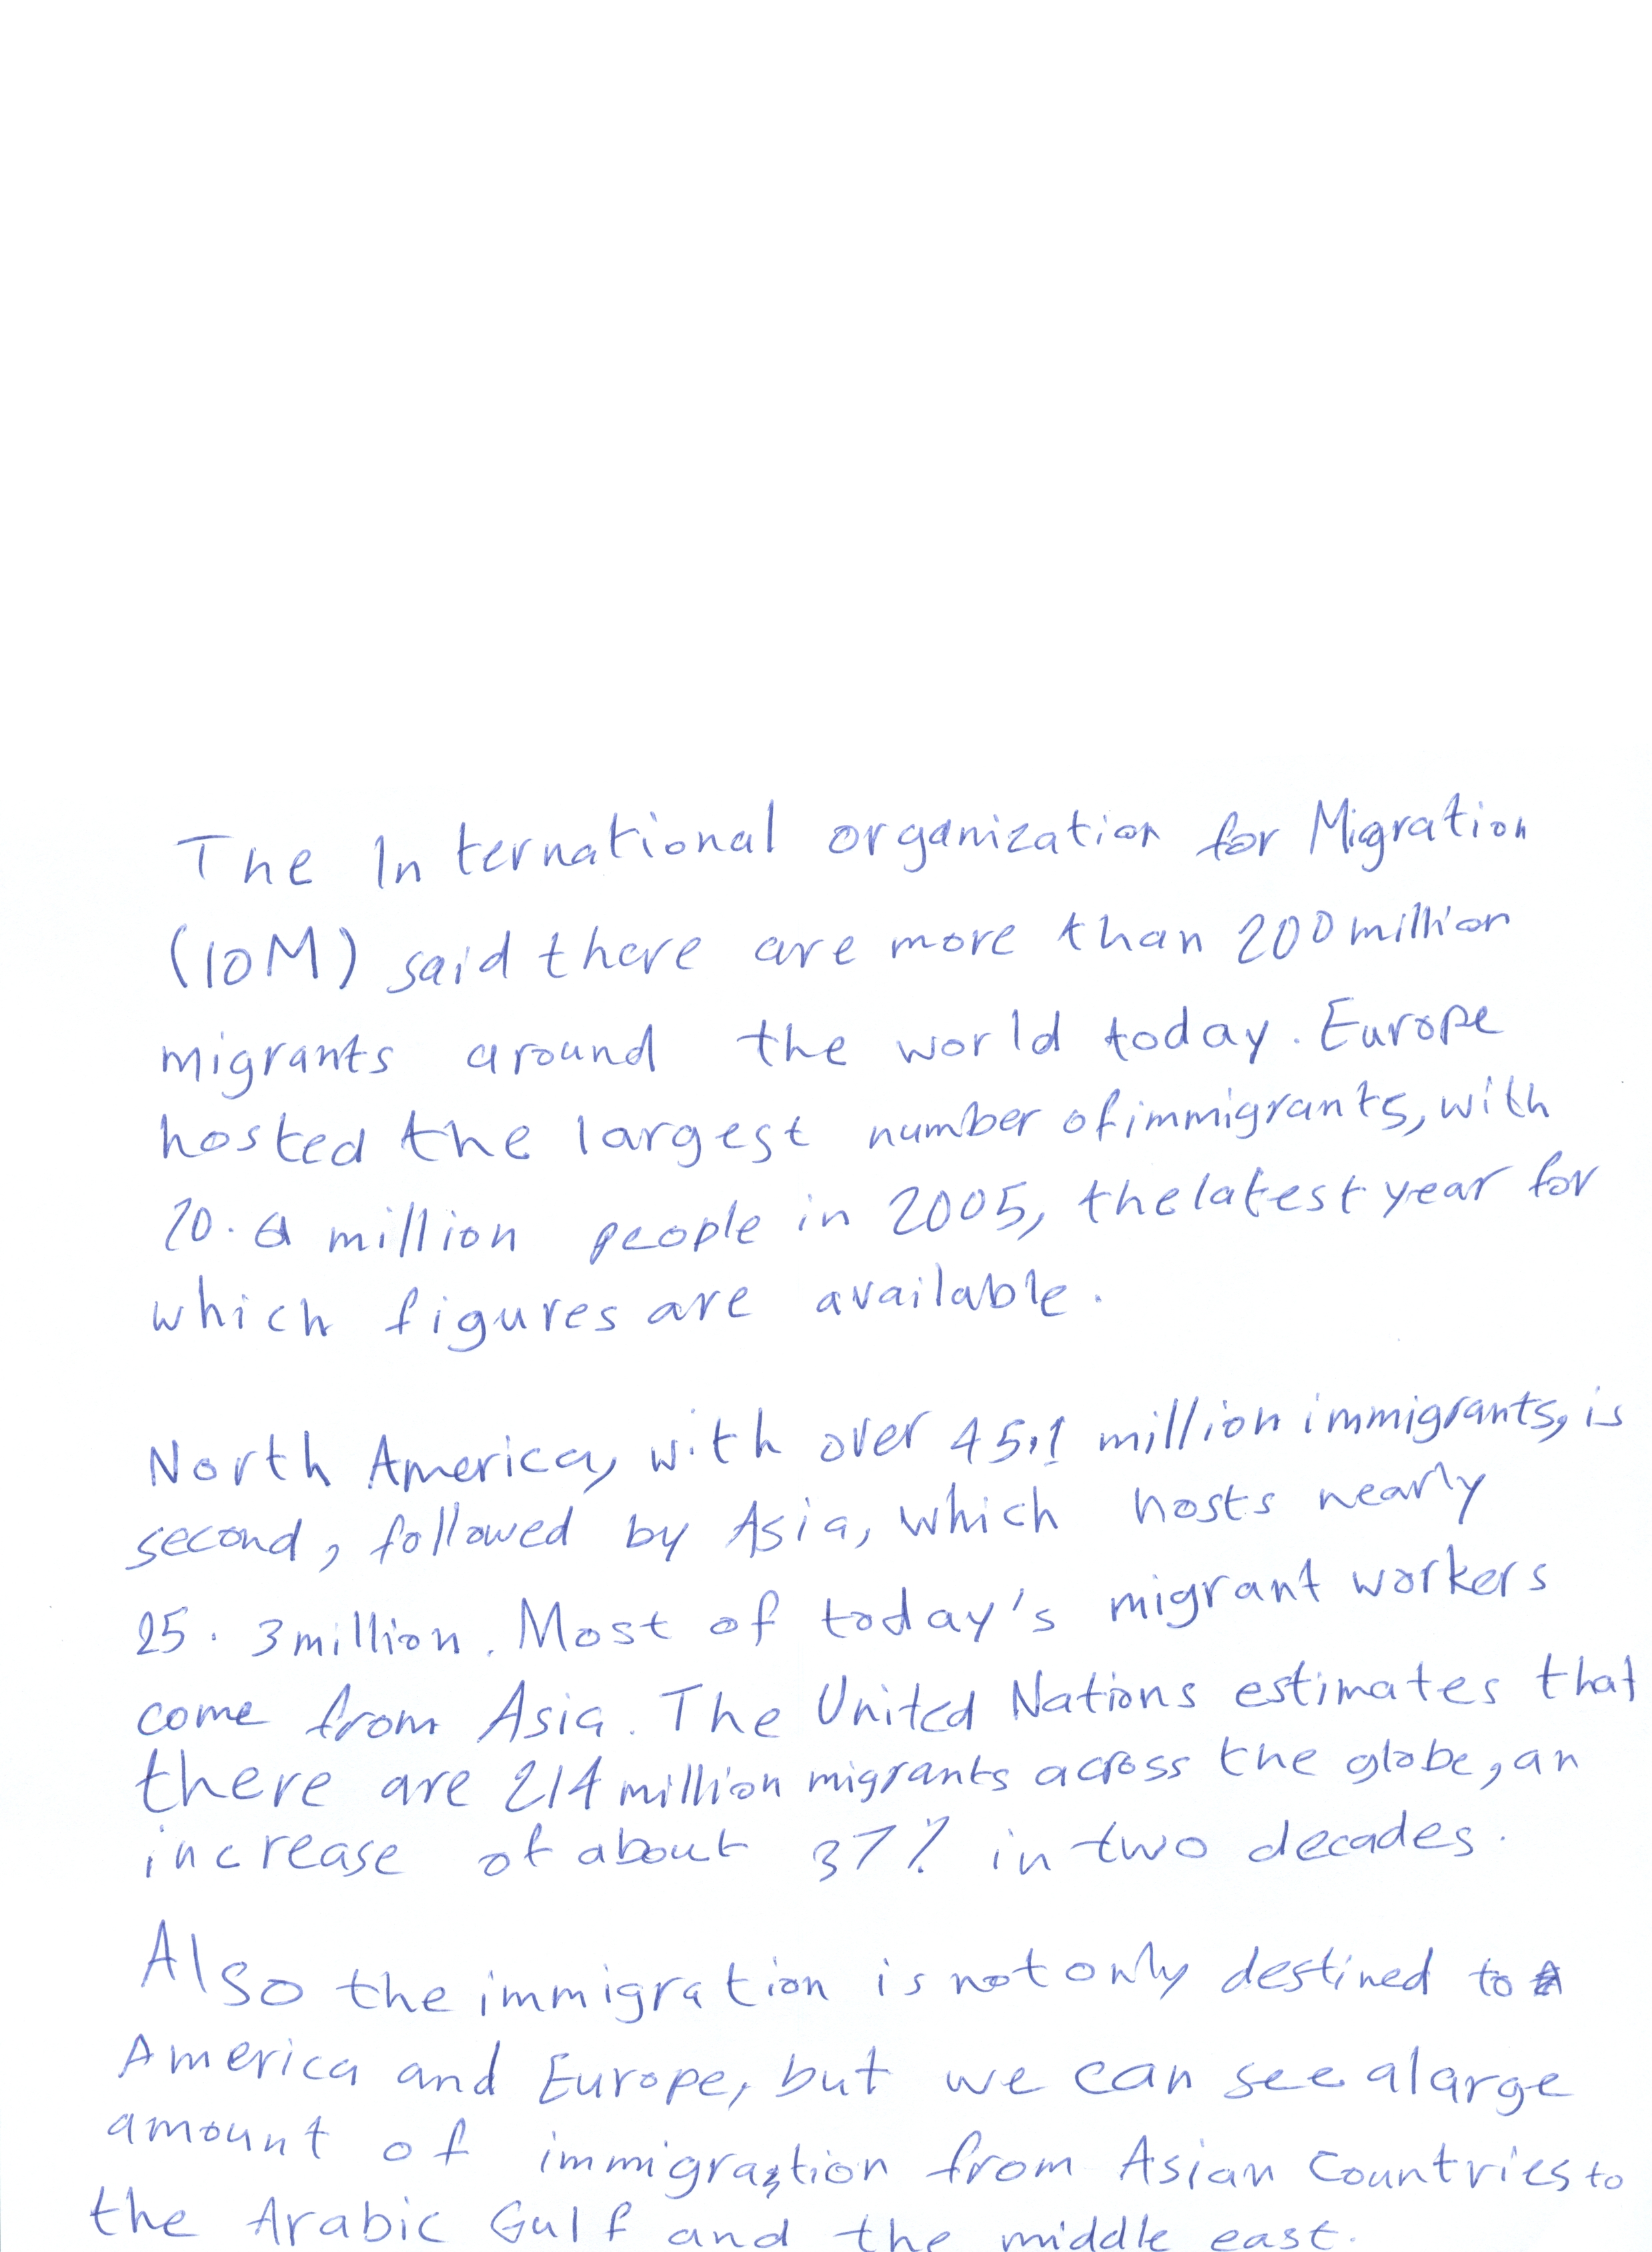 The International organization for Migration
(IOM) said there are more than 200 million
migrants around the world today. Europe
hosted the largest number of immigrants, with
70.6 million people in 2005, the latest year for
which figures are available.
North America, with over 45.1 million immigrants, is
second, followed by Asia, which hosts nearly
25.3 million. Most of today's migrant workers
come from Asia. The United Nations estimates that
there are 214 million migrants across the globe, an
increase of about 37% in two decades.
Also the immigration is not only destined to
America and Europe, but we can see a large
amount of immigration from Asian Countries to
the Arabic Gulf and the middle east.